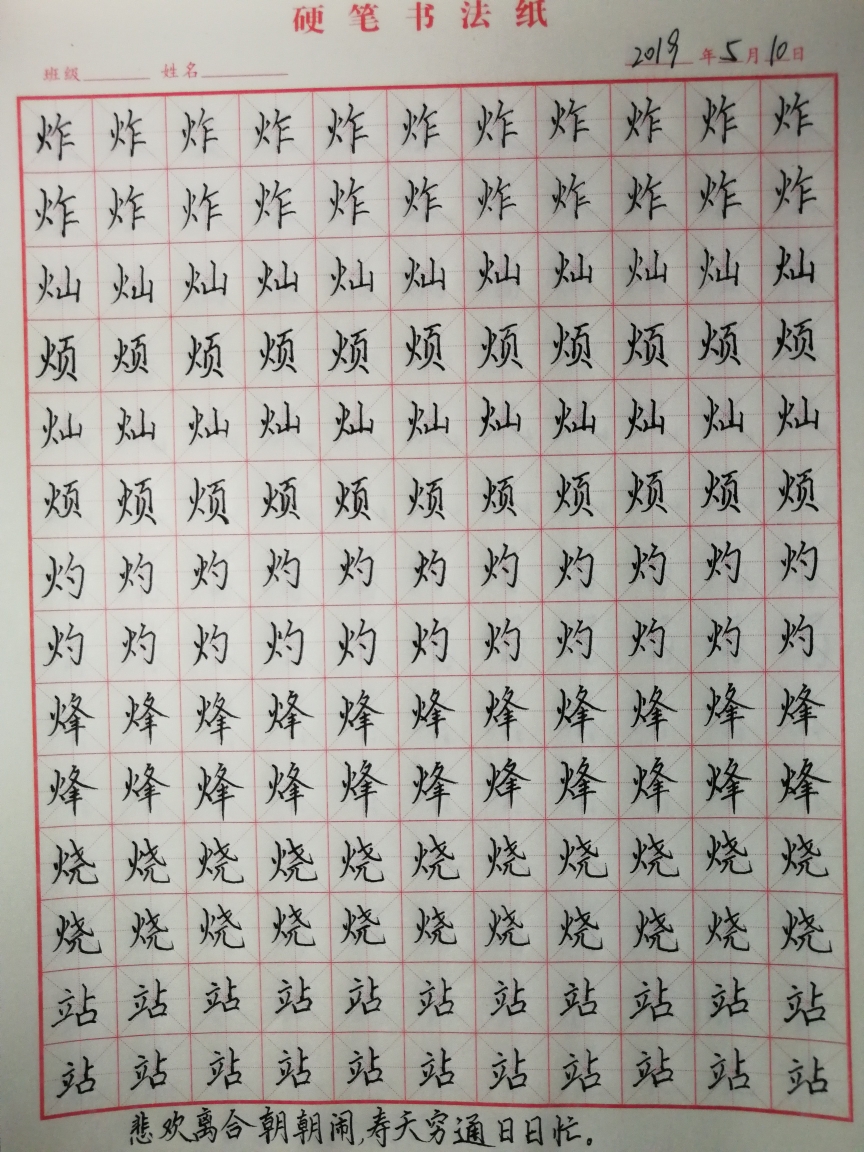 硬笔书法纸
班级 姓名 2019年5月10日
炸炸炸炸炸炸炸炸炸炸炸
炸炸炸炸炸炸炸炸炸炸炸
灿灿灿灿灿灿灿灿灿灿灿
烦烦烦烦烦烦烦烦烦烦烦
灿灿灿灿灿灿灿灿灿灿灿
烦烦烦烦烦烦烦烦烦烦烦
灼灼灼灼灼灼灼灼灼灼灼
灼灼灼灼灼灼灼灼灼灼灼
烽烽烽烽烽烽烽烽烽烽烽
烽烽烽烽烽烽烽烽烽烽烽
烧烧烧烧烧烧烧烧烧烧烧
烧烧烧烧烧烧烧烧烧烧烧
站站站站站站站站站站站
站站站站站站站站站站站
悲欢离合朝朝闹,寿夭穷通日日忙。